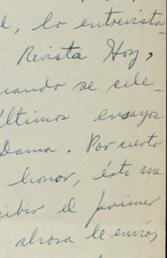 l, lo entrevista
Revista Hoy,
uando se cele-
últimos ensayos
Dama. Por cierto
honor, ésto me
cibir el primer
le envió,